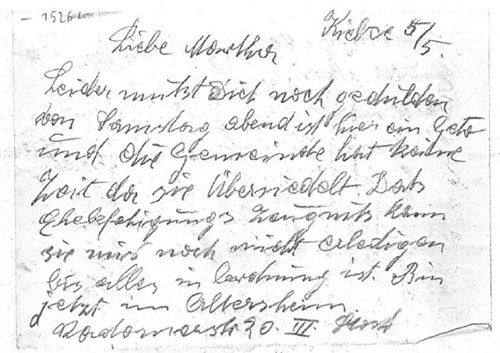 Kielce 5/5.
Liebe Martha
Leider mußt Dich noch gedulden
von Samstag abend ist hier ein Geto
und die Gemeinde hat keine
Zeit da sie Übersiedelt. Das
Ehebefähigungs Zeugniss kann
sie mir noch nicht erledigen
bis alles in Ordnung ist. Bin
jetzt im Altersheim
Radomerstr 20. III.